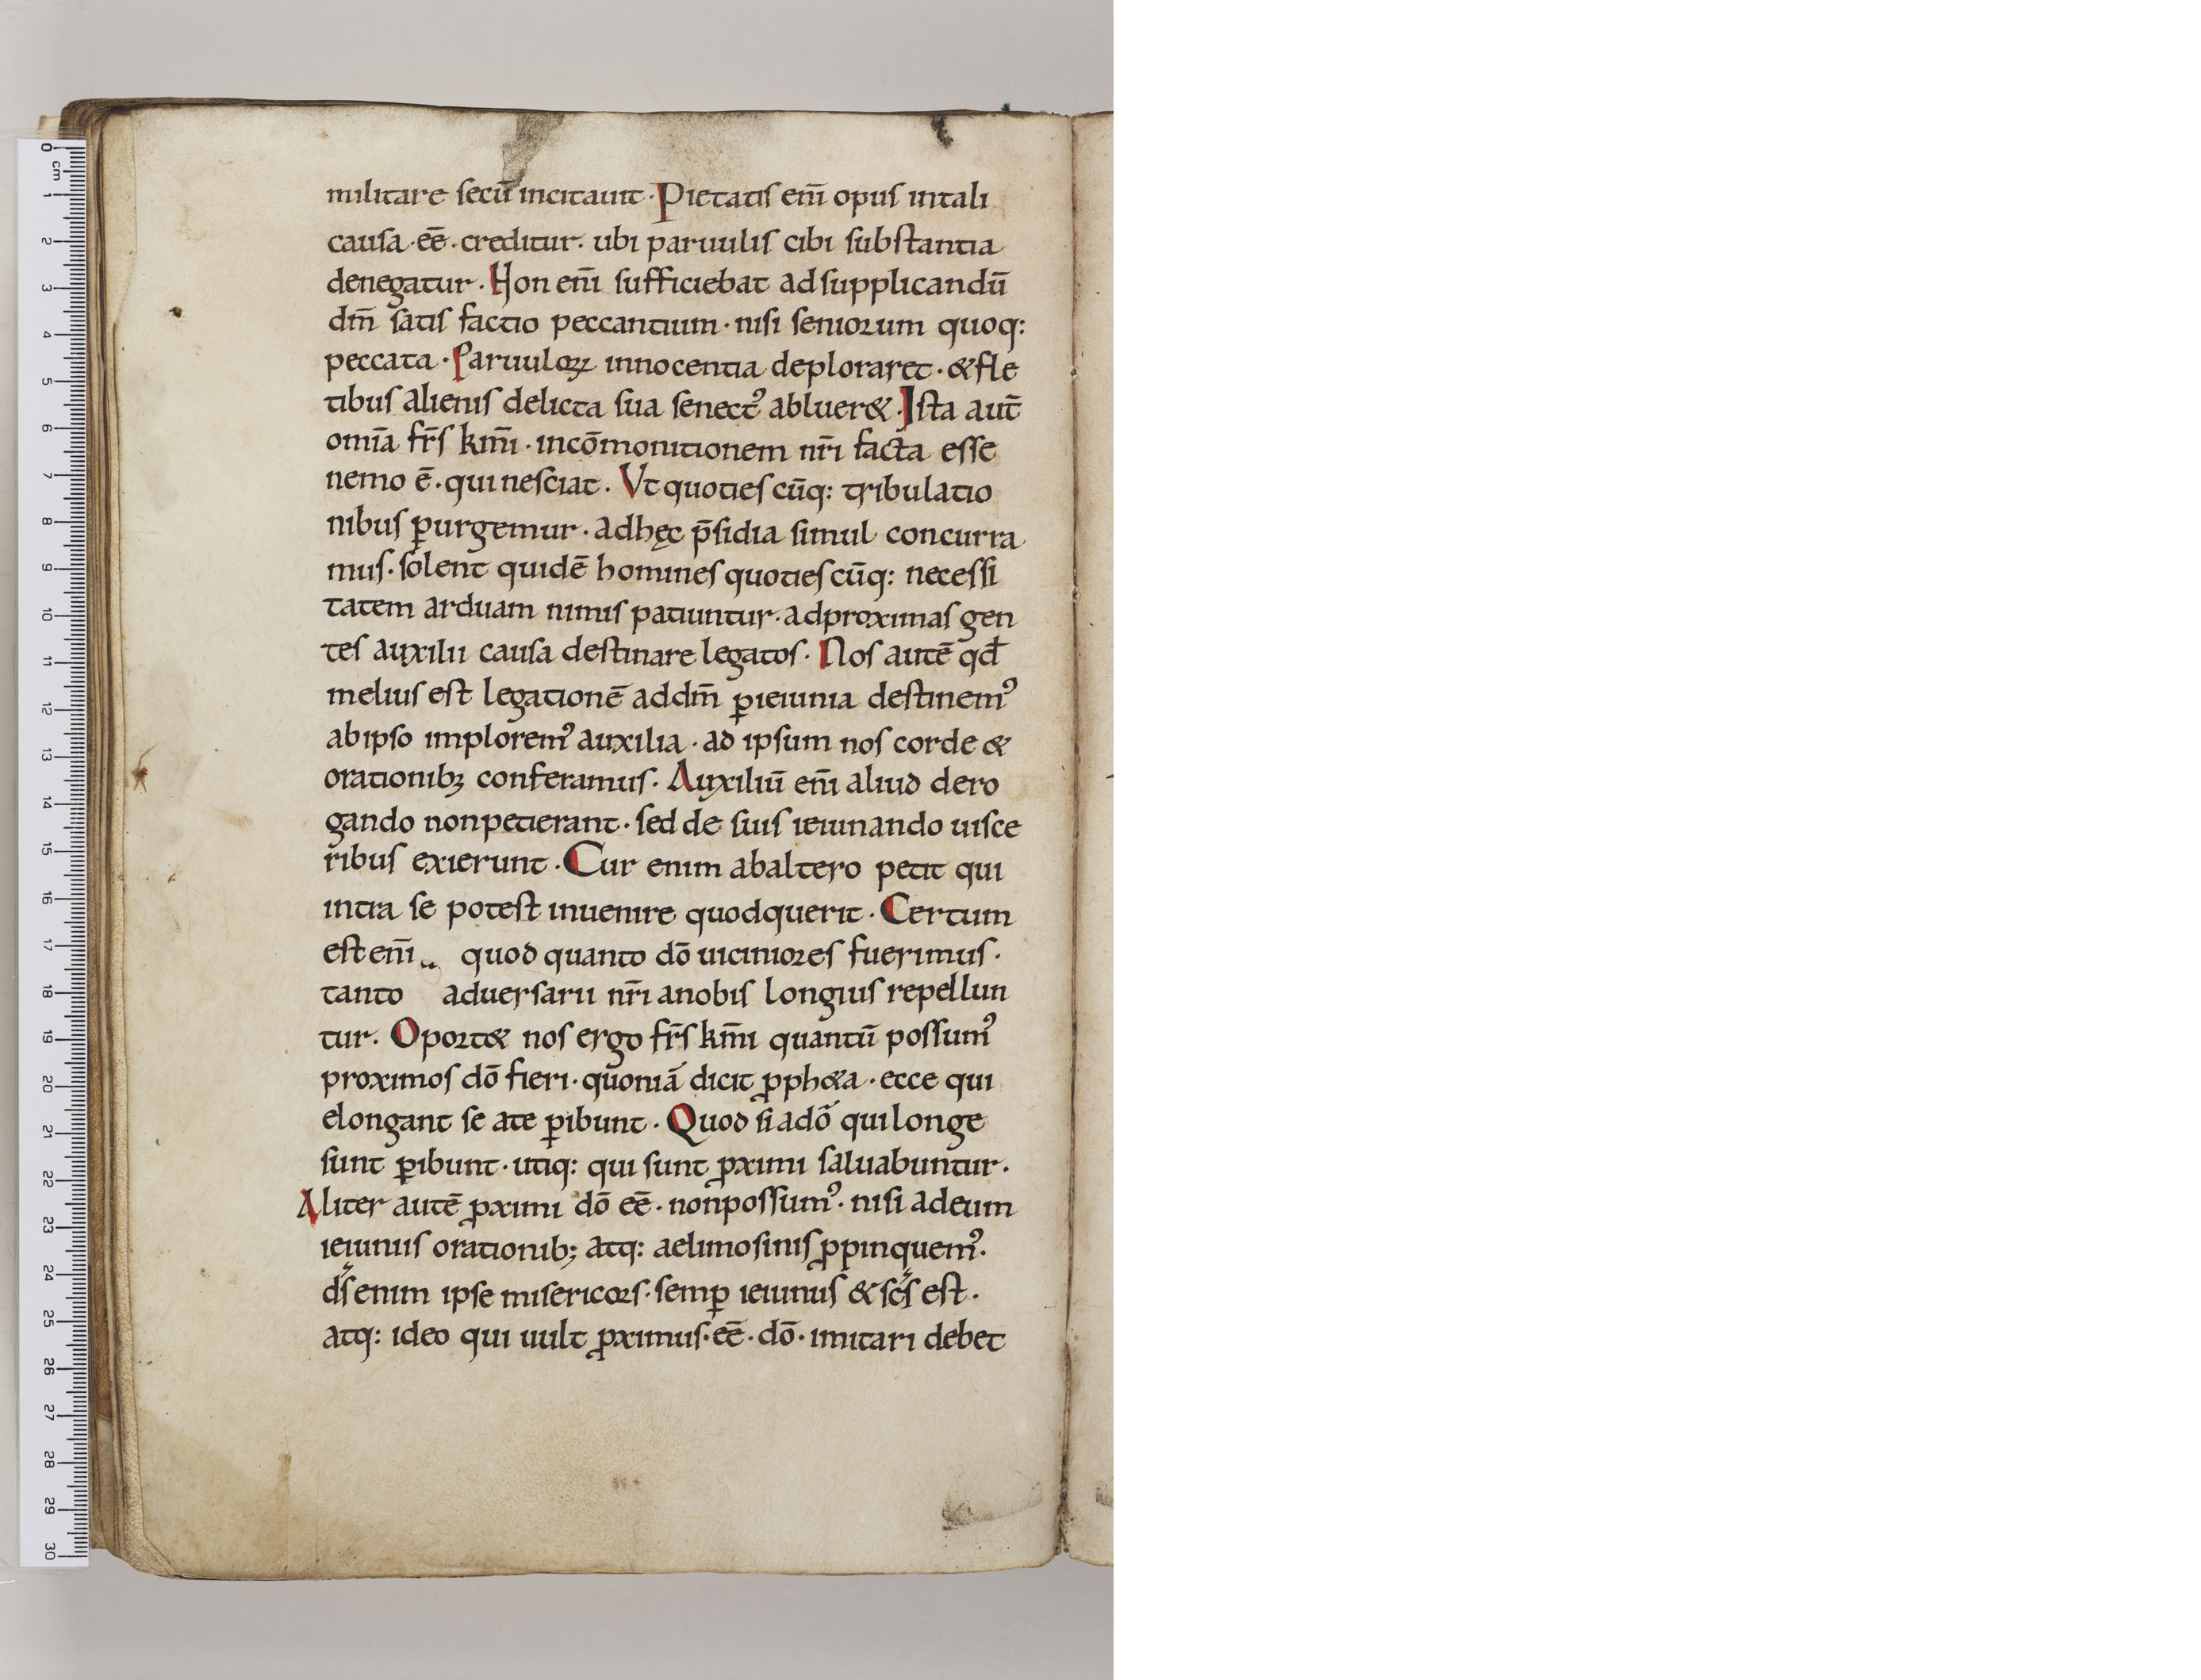 militare secū incitauit · Pietatis em̄ opus intali
causa · eē · creditur · ubi paruulis cibi substantia
denegatur · Non em̄ sufficiebat adsupplicandū
dm̄ satis factio peccantium · nisi seniorum quoq:
peccata · Paruuloꝝ innocentia deploraret · & fle
tibus alienis delicta sua senectꝰ abluer& · Ista aut̄
omīa fr̄s km̄i · incōmonitionem nr̄i facta esse
nemo ē · qui nesciat · Vt quotiescūq: tribulatio
nibus ꝑurgemur · adhęc p̄sidia simul concurra
mus · solent quidē homines quotiescūq: necessi
tatem arduam nimis patiuntur · adproximas gen
tes auxilii causa destinare legatos · Nos autē qd̄
melius est legationē addm̄ ꝑieiunia destinemꝰ
abipso imploremꝰ auxilia · ad ipsum nos corde &
orationibꝫ conferamus · Auxiliū em̄ aliud dero
gando nonpetierant · sed de suis ieiunando uisce
ribus exierunt · Cur enim abaltero petit qui
intra se potest inuenire quodquerit · Certum
est em̄ quod quanto dō uiciniores fuerimus ·
tanto aduersarii nr̄i anobis longius repellun
tur · Oport& nos ergo fr̄s km̄i quantū possumꝰ
proximos dō fieri · quoniā dicit ꝓph&a · ecce qui
elongant se ate ꝑibunt · Quod si adō qui longe
sunt ꝑibunt · utiq: qui sunt ꝓximi saluabuntur ·
Aliter autē ꝓximi dō eē · nonpossumꝰ · nisi adeum
ieiuniis orationib; atq: aelimosinis ꝓpinquemꝰ ·
ds̄ enim ipse misericors · semꝑ ieiunus & sc̄s est ·
atq: ideo qui uult ꝓximus · eē · dō · imitari debet
0 cm 1 2 3 4 5 6 7 8 9 10 11 12 13 14 15 16 17 18 19 20 21 22 23 24 25 26 27 28 29 30